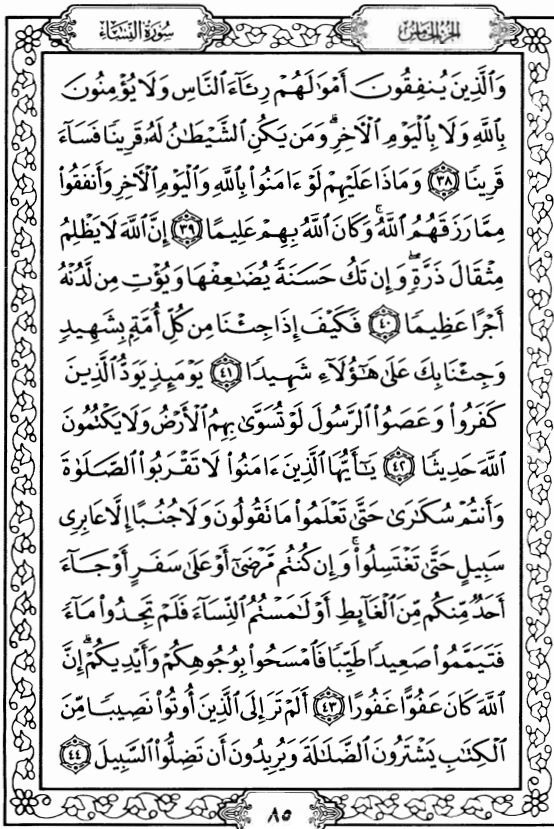 سُورَةُ النِّسَاءِ
الجُزْءُ الخَامِسُ
وَالَّذِينَ يُنفِقُونَ أَمْوَٰلَهُمْ رِئَآءَ النَّاسِ وَلَا يُؤْمِنُونَ
بِاللَّهِ وَلَا بِالْيَوْمِ الْآخِرِ ۗ وَمَن يَكُنِ الشَّيْطَٰنُ لَهُۥ قَرِينًا فَسَآءَ
قَرِينًا ٣٨ وَمَاذَا عَلَيْهِمْ لَوْ ءَامَنُوا۟ بِاللَّهِ وَالْيَوْمِ الْآخِرِ وَأَنفَقُوا۟
مِمَّا رَزَقَهُمُ اللَّهُ ۚ وَكَانَ اللَّهُ بِهِمْ عَلِيمًا ٣٩ إِنَّ اللَّهَ لَا يَظْلِمُ
مِثْقَالَ ذَرَّةٍ ۖ وَإِن تَكُ حَسَنَةً يُضَٰعِفْهَا وَيُؤْتِ مِن لَّدُنْهُ
أَجْرًا عَظِيمًا ٤٠ فَكَيْفَ إِذَا جِئْنَا مِن كُلِّ أُمَّةٍۭ بِشَهِيدٍ
وَجِئْنَا بِكَ عَلَىٰ هَٰٓؤُلَآءِ شَهِيدًا ٤١ يَوْمَئِذٍ يَوَدُّ الَّذِينَ
كَفَرُوا۟ وَعَصَوُا۟ الرَّسُولَ لَوْ تُسَوَّىٰ بِهِمُ الْأَرْضُ وَلَا يَكْتُمُونَ
اللَّهَ حَدِيثًا ٤٢ يَٰٓأَيُّهَا الَّذِينَ ءَامَنُوا۟ لَا تَقْرَبُوا۟ الصَّلَوٰةَ
وَأَنتُمْ سُكَٰرَىٰ حَتَّىٰ تَعْلَمُوا۟ مَا تَقُولُونَ وَلَا جُنُبًا إِلَّا عَابِرِى
سَبِيلٍ حَتَّىٰ تَغْتَسِلُوا۟ ۚ وَإِن كُنتُم مَّرْضَىٰٓ أَوْ عَلَىٰ سَفَرٍ أَوْ جَآءَ
أَحَدٌ مِّنكُم مِّنَ الْغَآئِطِ أَوْ لَٰمَسْتُمُ النِّسَآءَ فَلَمْ تَجِدُوا۟ مَآءً
فَتَيَمَّمُوا۟ صَعِيدًا طَيِّبًا فَامْسَحُوا۟ بِوُجُوهِكُمْ وَأَيْدِيكُمْ ۗ إِنَّ
اللَّهَ كَانَ عَفُوًّا غَفُورًا ٤٣ أَلَمْ تَرَ إِلَى الَّذِينَ أُوتُوا۟ نَصِيبًا مِّنَ
الْكِتَٰبِ يَشْتَرُونَ الضَّلَٰلَةَ وَيُرِيدُونَ أَن تَضِلُّوا۟ السَّبِيلَ ٤٤
٨٥